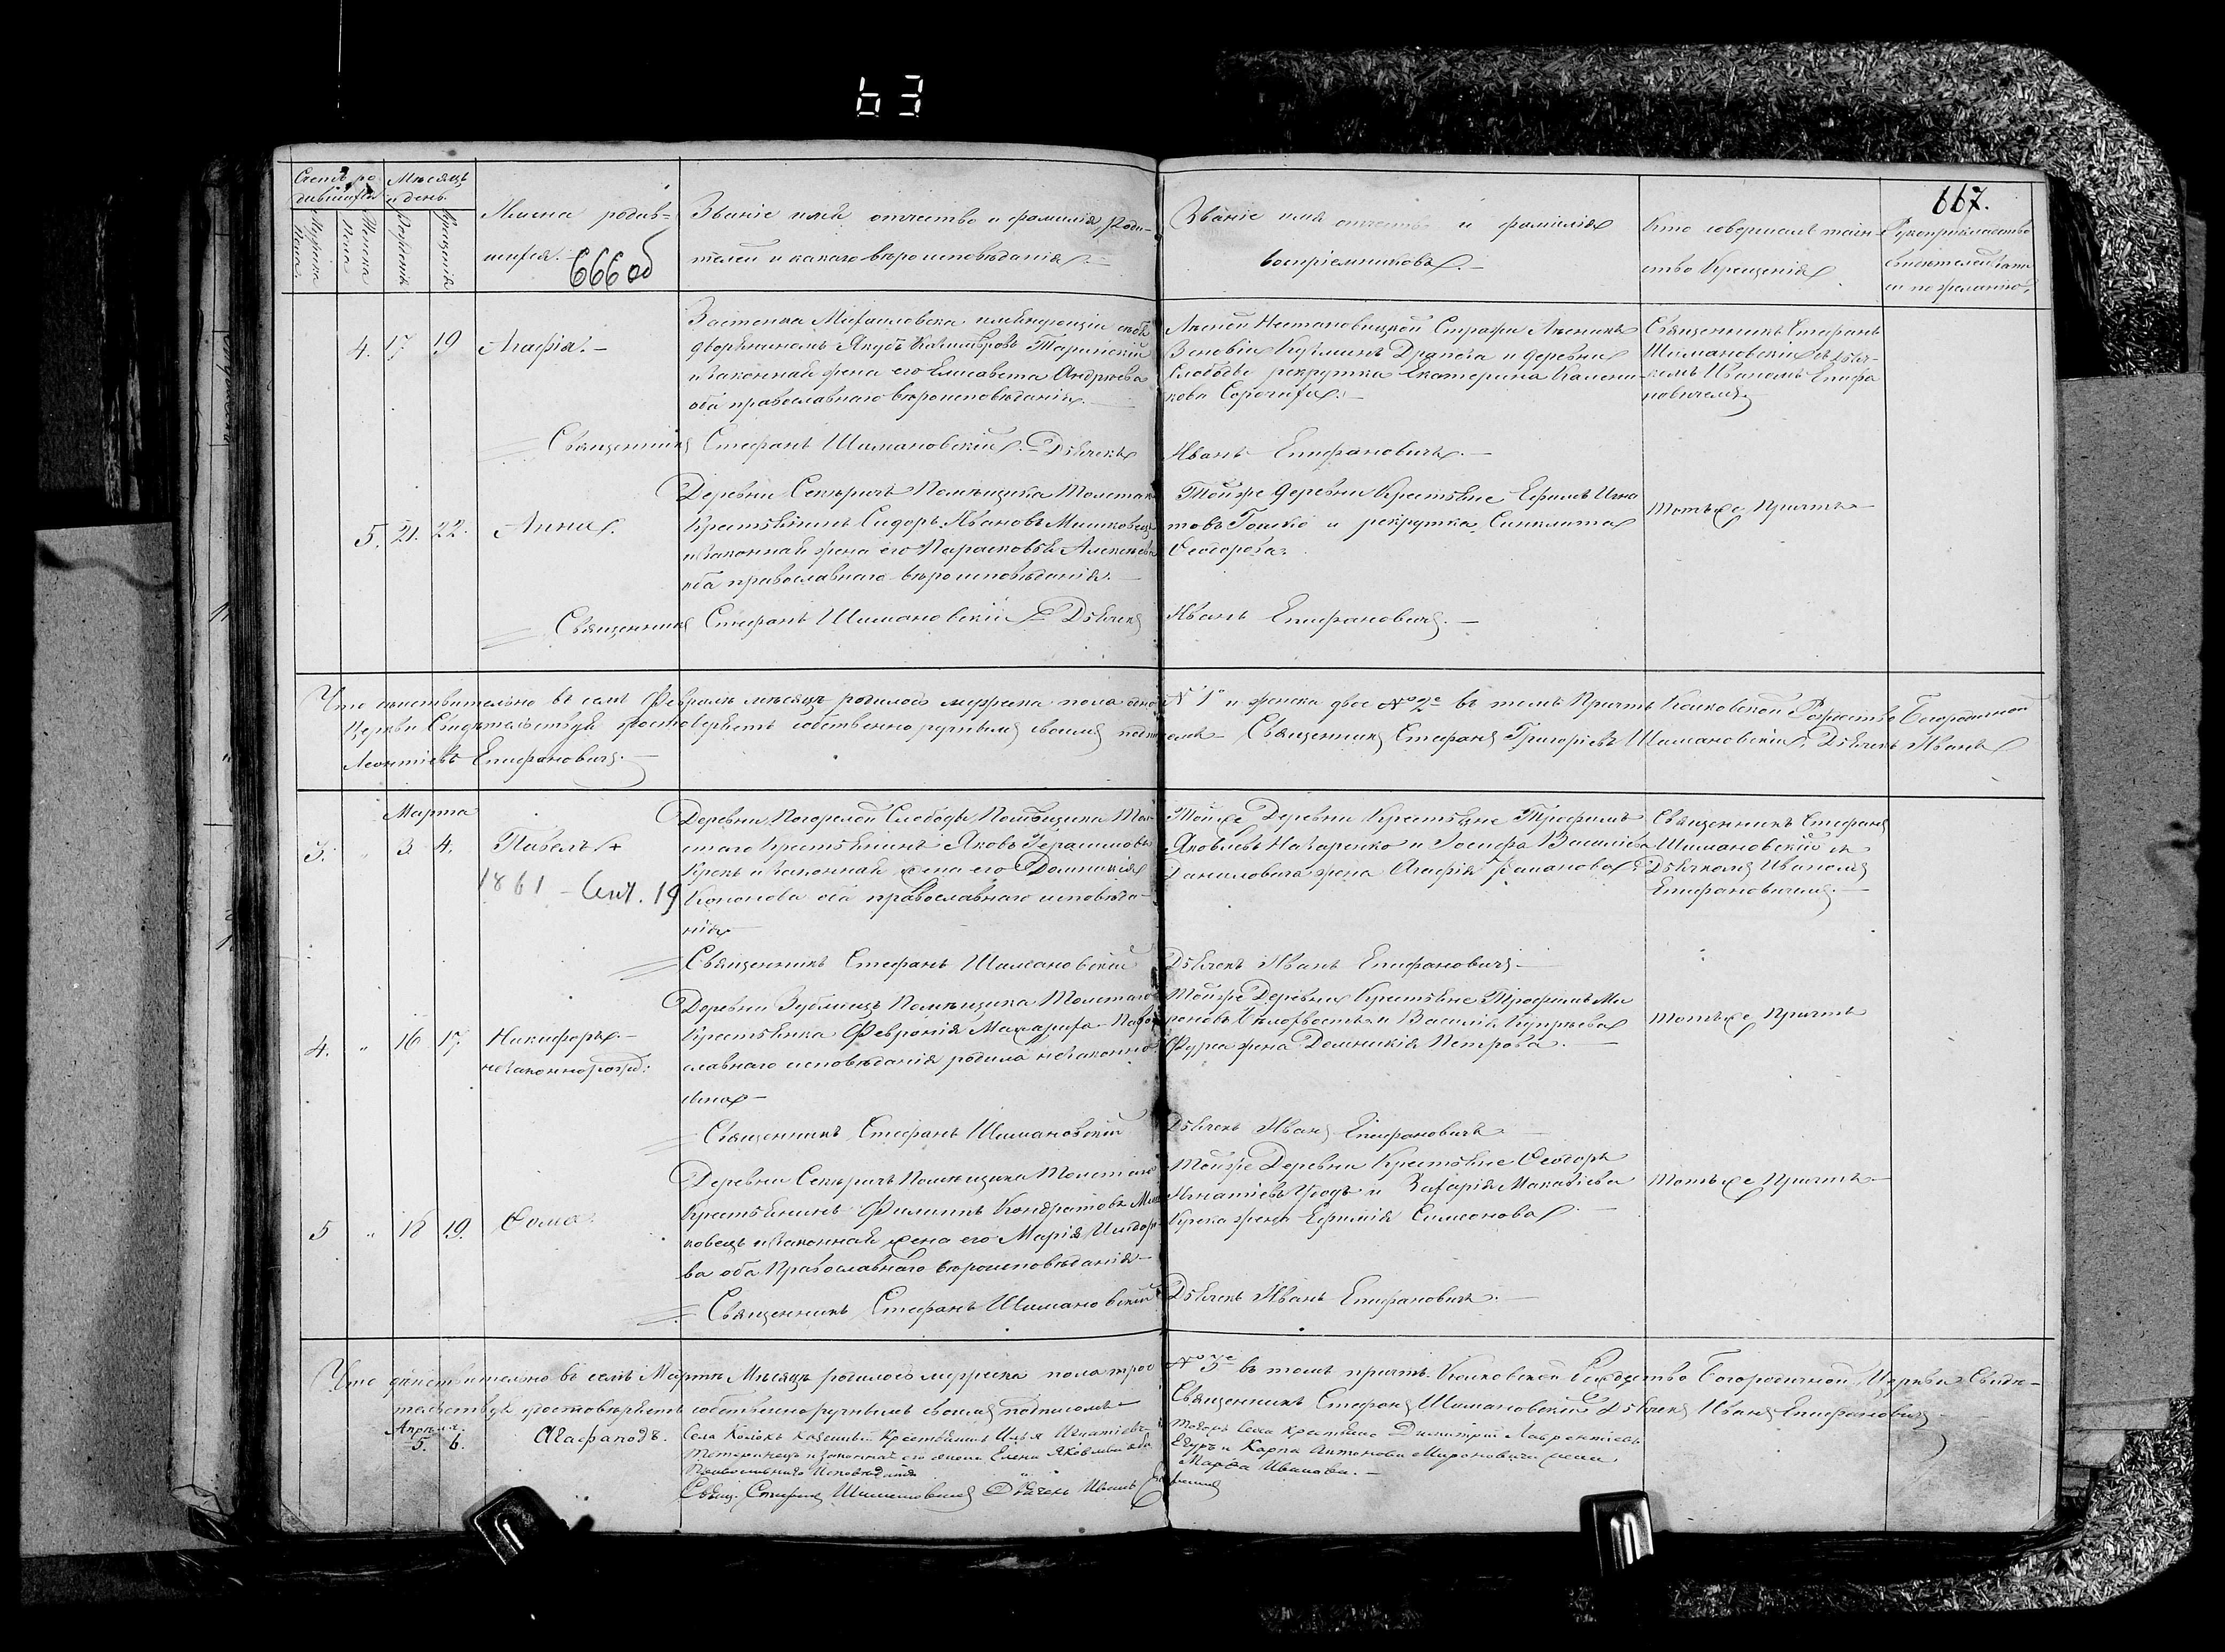 63
667.
666 об
Счетъ ро
дившихся
Мѣсяцъ
и день.
Мужска
пола.
Женска
пола
Рожденія
Крещенія
Имена родив-
шихся.
Званіе имя отчество и фамилія Роди-
телей и какаго вѣроисповѣданія.
Званіе имя отчество и фамилія
воспріемниковъ.
Кто совершалъ таин-
ство Крещенія
Рукоприкладство
свидѣтелей запи
си по желанію.
4. 17 19
Агафія.
Застенка Михаиловска именующій себя
дворяниномъ Якубъ Казимѣровъ
и законная жена его Елисавета Андреева
оба православнаго вѣроисповѣданія.
деревни
Слободы рекрутка Екатерина
Священникъ Стефанъ
Шимановскій съ дьяч-
комъ Иваномъ Епифа
новичемъ
Священникъ Стефанъ Шимановскій. Дьячекъ
Иванъ Епифановичъ.
5. 21. 22.
Анна.
Деревни Секъричъ Помѣщика Толстаго
Крестьянинъ Сидоръ Ивановъ Мишковецъ
и законная жена его Парасковья Алексѣева
оба православнаго вѣроисповѣданія.
Тойже деревни Крестьяне Ефимъ Игна
товъ и рекрутка Синклита
Ѳеодорова.
Тотъже Причтъ
Священникъ Стефанъ Шимановскій Дьячекъ
Иванъ Епифановичъ.
Что дѣйствительно въ семъ Февралѣ мѣсяцѣ родилось мужска пола одно № 1 и женска двое № 2 въ томъ Причтъ Колковской Рожество Богородичной
Церкви Свидѣтельствуя удостовѣряетъ собственноручнымъ своимъ подписомъ Священникъ Стефанъ Григорьевъ Шимановскій. Дьячекъ Иванъ
Леонтіевъ Епифановичъ.
Марта
3. " 3. 4.
Павелъ +
1861 - Сент. 19
Деревни Погорелой Слободы Помѣщика Тол
стаго Крестьянинъ Яковъ Герасимовъ
Крекъ и законная жена его Домникія
Кононова оба православнаго исповѣда-
нія
Тойже Деревни Крестьяне Трофимъ
Яковлевъ Назаренко и Іосифа Василіева
Даниловича жена Агафія Романова.
Священникъ Стефанъ
Шимановскій съ
Дьячкомъ Иваномъ
Епифановичемъ.
Священникъ Стефанъ Шимановскій
Дьячекъ Иванъ Епифановичъ
4. " 16 17
Никифоръ.
незаконнорожд:
Деревни Помѣщика Толстаго
Крестьянка Февронія
славнаго исповѣданія родила незаконно
Тойже Деревни Крестьяне Трофимъ Ми
роновъ и Василія
жена Домникія Петрова.
Тотъже Причтъ
Священникъ Стефанъ Шимановскій
Дьячекъ Иванъ Епифановичъ
5 " 18 19.
Ѳома.
Деревни Секъричъ Помѣщика Толстаго
Крестьянинъ Филиппъ Кондратовъ Миш
ковецъ и законная жена его Марія
ва оба Православнаго вѣроисповѣданія
Тойже Деревни Крестьяне Ѳеодоръ
Игнатіевъ и Захарія Макавіева
Крека жена Ефимія Симеонова.
Тотъже Причтъ
Священникъ Стефанъ Шимановскій
Дьячекъ Иванъ Епифановичъ.
Что дѣйствительно въ семъ Мартѣ Мѣсяцѣ родилось мужеска пола трое № 3 въ томъ причтъ Колковской Рождество Богородичной Церкви Свидѣ-
тельствуя удостовѣряетъ собственноручнымъ своимъ подписомъ Священникъ Стефанъ Шимановскій Дьячекъ Иванъ Епифановичъ
Апрѣля.
5. 6.
Агафаподъ.
Села Колокъ Крестьянинъ Илья Игнатіевъ
и законная его жена Елена Яковлева оба
Православнаго Исповѣданія
Свящ. Стефанъ Шимановскій Дьячекъ Иванъ
Тогожъ Села Крестьяне Димитрій Лаврентіевъ
и Карпа Антонова Мироновича жена
Марѳа Иванова.